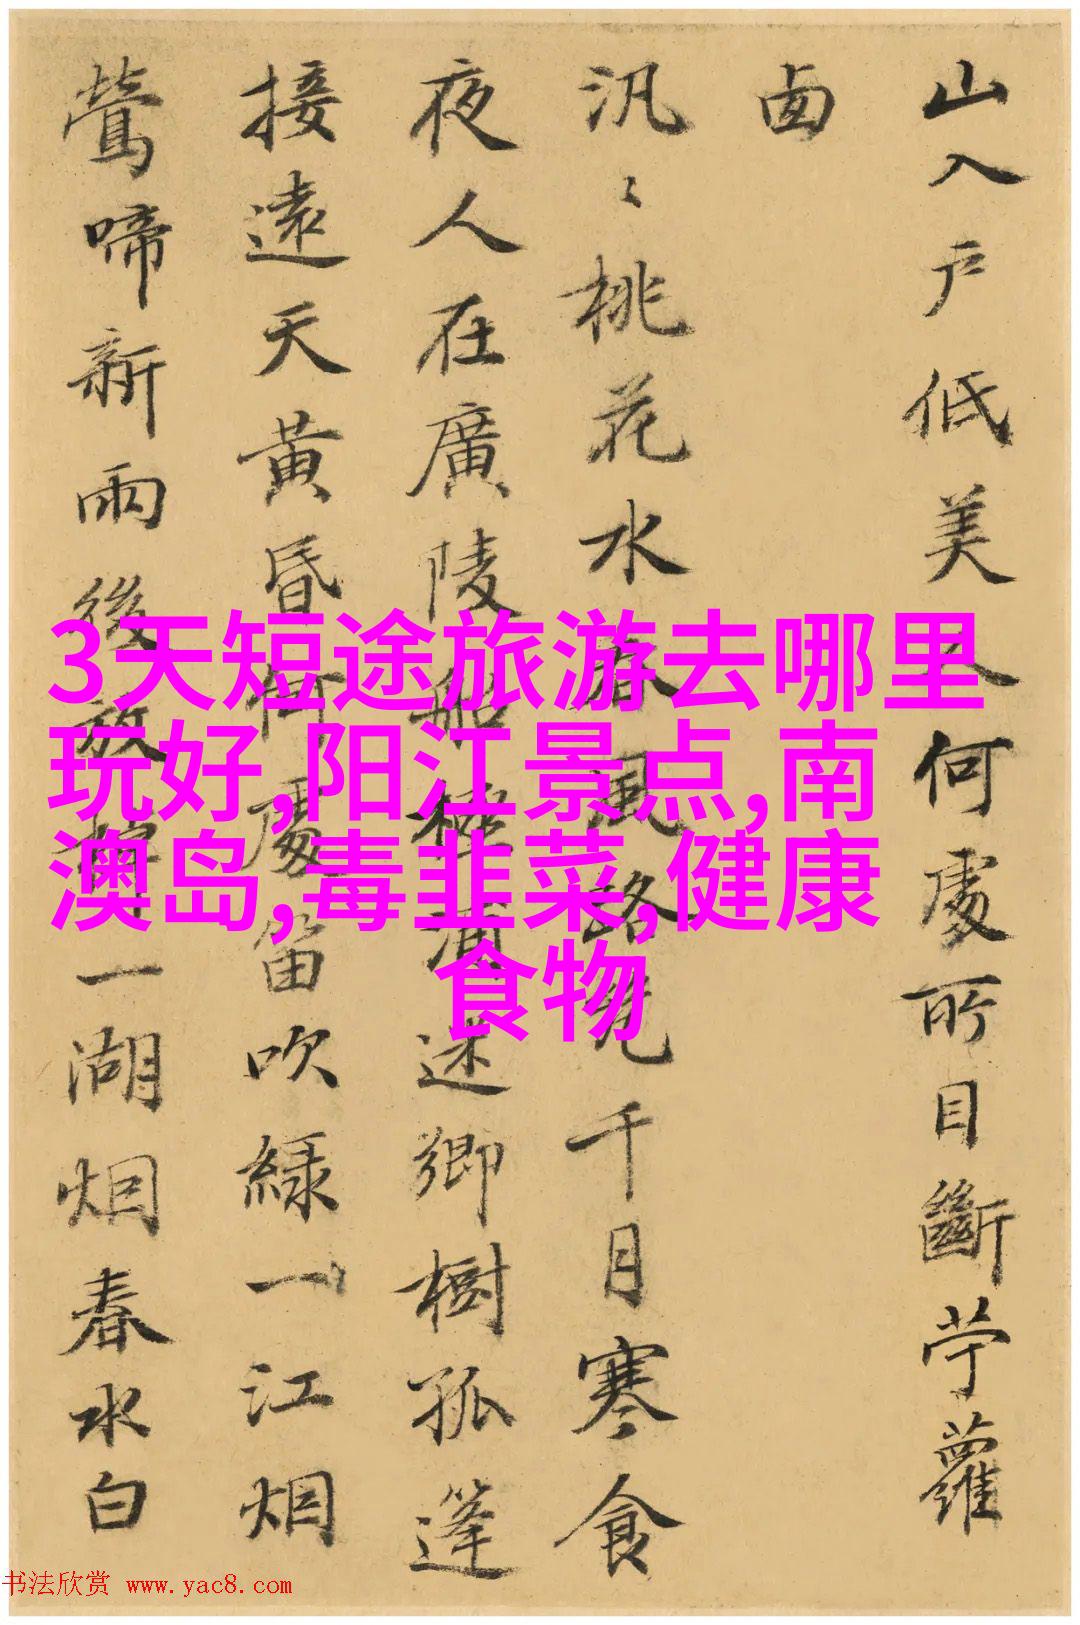 山入户低美人何處所目斷苧蘿
汎〻桃花水春風路千月寒食
夜人在廣陵船極浦迷鄉樹孤篷
接遠天黄昏何處笛吹緑一江烟
鶯啼新雨後放棹一湖烟春水白
3天短途旅游去哪里
玩好,阳江景点,南
澳岛,毒韭菜,健康
食物
书法欣赏 www.yac8.com